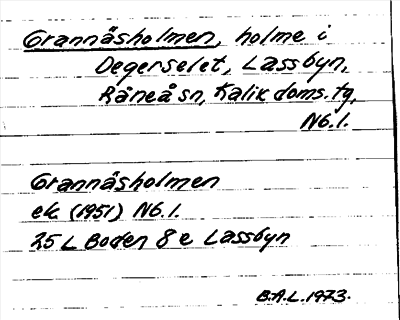 Grannäsholmen, holme i
Degerselet, Lassbyn,
Råneå sn, Kalix doms. tg,
Nb. l.
Grannäsholmen
ek (1951) Nb. l.
25 L Boden 8 e Lassbyn
B.A.L. 1973.